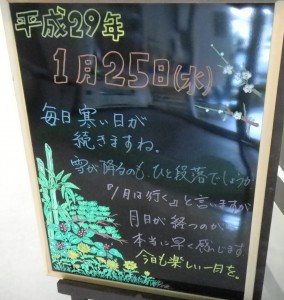 平成29年
1月25日(水)
毎日寒い日が
続きますね.
雪が降るのも、ひと段落でしょうか
『1月は行く。』と言いますが
月日が経つのが
本当に早く感じます
今日も楽しい一日を。